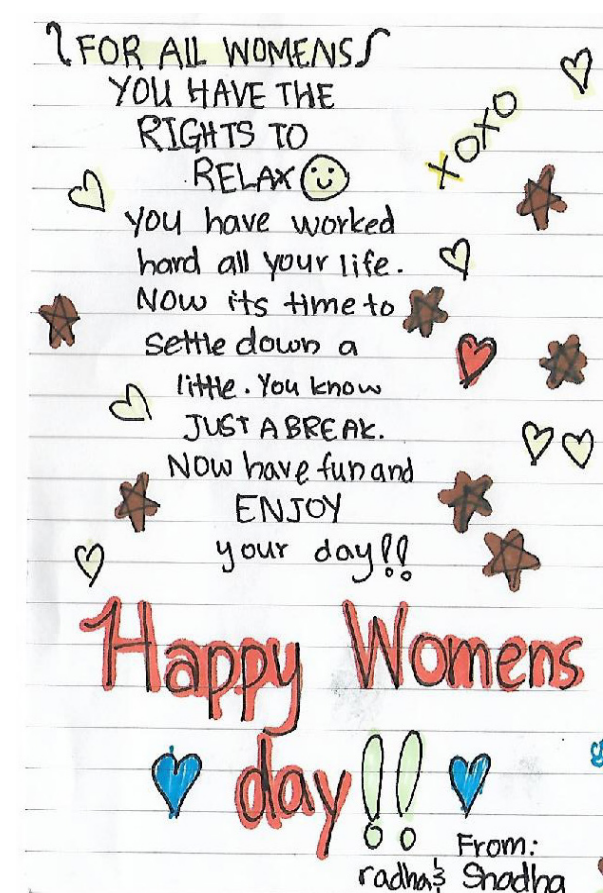 FOR ALL WOMENS
YOU HAVE THE
RIGHTS TO
RELAX
XOXO
you have worked
hard all your life.
NOW its time to
settle down a
little. You know
JUST A BREAK.
NOW have fun and
ENJOY
your day!!
Happy Womens
day!!
From:
radha & Shadha